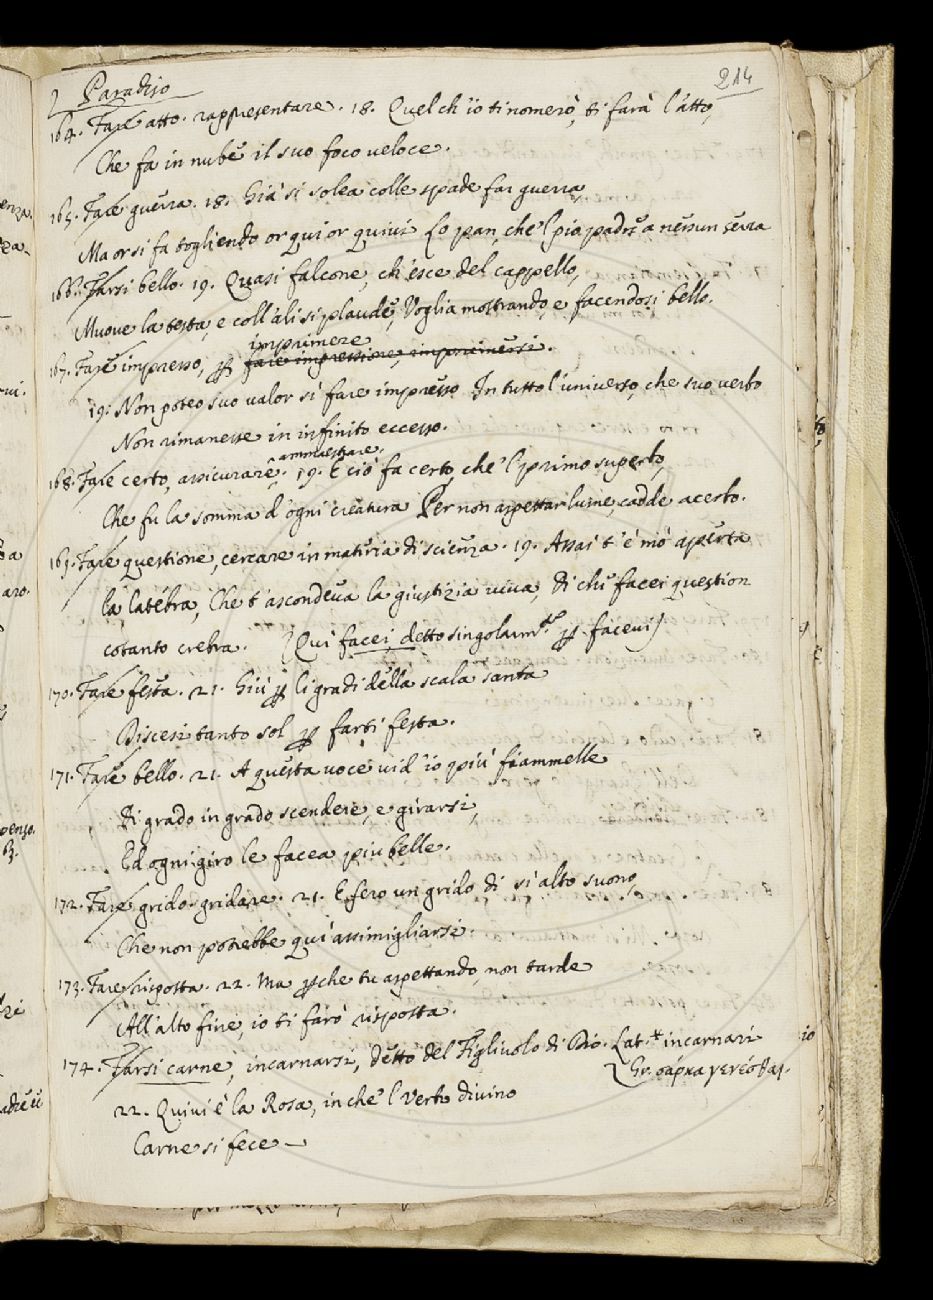 Paradiso
214
164. Fare atto. rappresentare. 18. Quel ch'io ti nomerò, ti farà l'atto,
Che fa in nube il suo foco veloce.
165. Fare guerra. 18. Già si solea colle spade far guerra
Ma or si fa togliendo or qui or quivi Lo pan, che'l pio padre a nessun serra
166. Farsi bello. 19. Quasi falcone, ch'esce del cappello,
Muove la testa, e coll'ali si plaude, Voglia mostrando, e facendosi bello.
imprimere
167. Fare impresso, ꝑ fare impressione, imprimersi.
19. Non poteo suo valor sì fare impresso In tutto l'universo, che suo verbo
Non rimanesse in infinito eccesso.
ammaestrare.
168. Fare certo, assicurare. 19. E ciò fa certo, che'l primo superbo,
Che fu la somma d'ogni creatura Per non aspettar lume, cadde acerbo.
169. Fare questione, cercare in materia di scienza. 19. Assai t'è mò aperta
la latebra, Che t'ascondeva la giustizia viva, Di che facei question
cotanto crebra. (Qui facei, detto singolarm.te ꝑ facevi)
170. Fare festa. 21. Giù ꝑ li gradi della scala santa
Discesi tanto sol ꝑ farti festa.
171. Fare bello. 21. A questa voce vid'io più fiammelle
Di grado in grado scendere, e girarsi,
Ed ogni giro le facea più belle.
172. Fare grido. gridare. 21. E fero un grido di sì alto suono,
Che non potrebbe qui assimigliarsi.
173. Fare risposta. 22. Ma ꝑche tu aspettando, non tarde
All'alto fine, io ti farò risposta.
174. Farsi carne, incarnarsi, detto del Figliuolo di Dio. Lat. incarnari
Gr. σάρκα γενέσθαι.
22. Quivi è la Rosa, in che'l Verbo divino
Carne si fece —